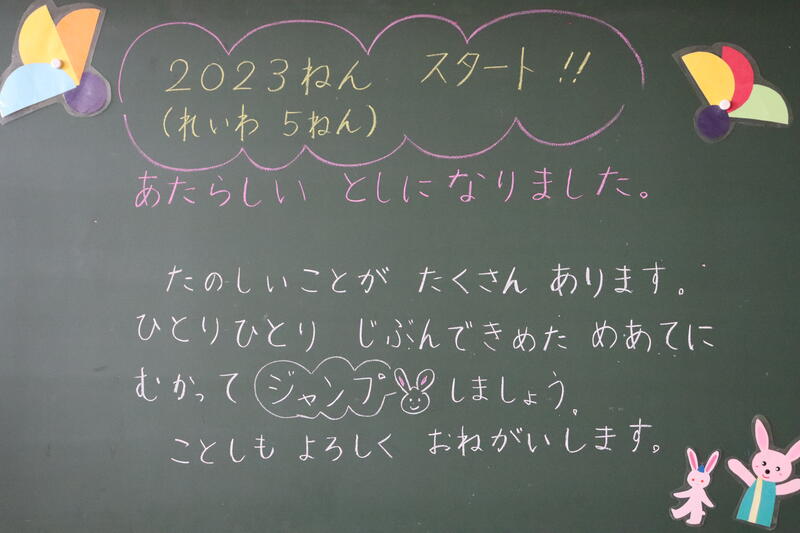 2023ねん スタート!!
(れいわ 5ねん)
あたらしい としになりました。
たのしいことが たくさん あります。
ひとりひとり じぶんできめた めあてに
むかって ジャンプ しましょう。
ことしも よろしく おねがいします。